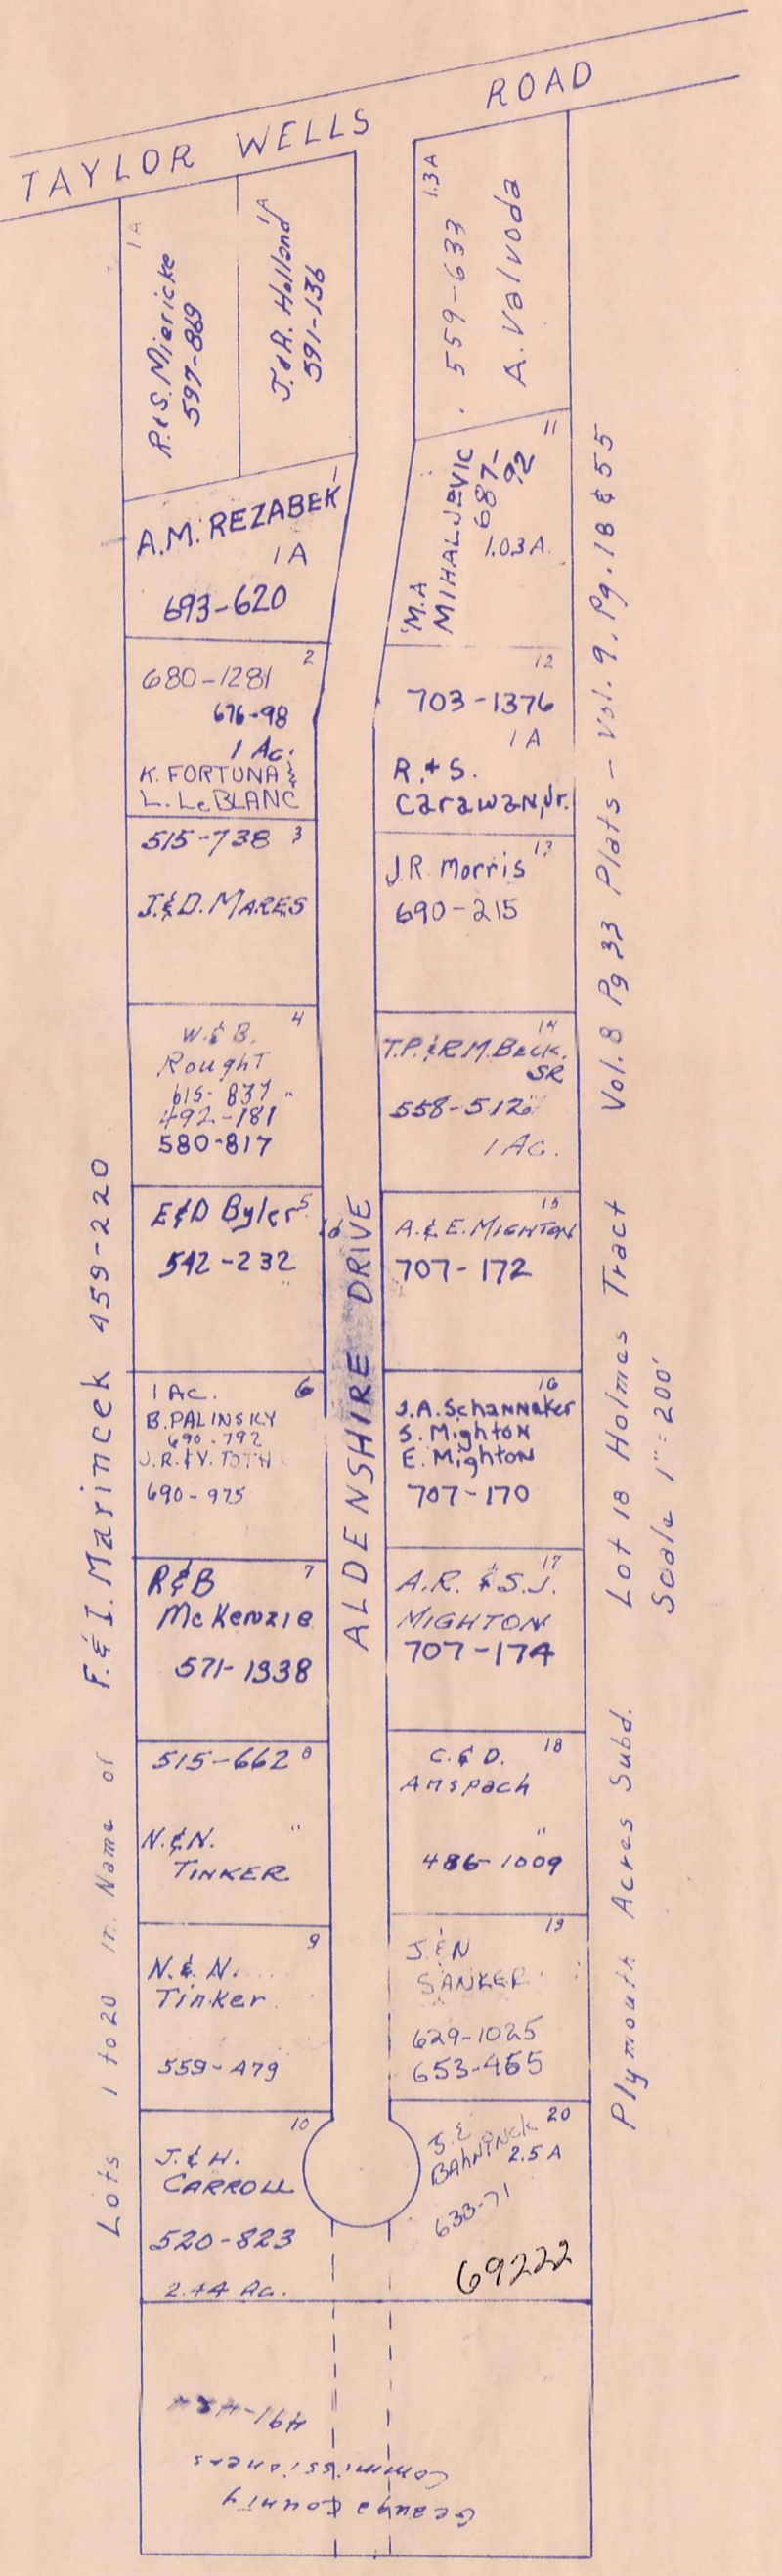 TAYLOR WELLS ROAD
1A
R.&S. Miericke
597-869
1A
J.&R. Holland
591-136
1.3A
559-633
A. Valvoda
A.M. REZABEK
1A
693-620
11
M.A
MIHALJEVIC
687-
92
1.03A.
2
680-1281
676-98
1 Ac.
K. FORTUNA &
L. LeBLANC
12
703-1376
1A
R.+S.
Carawan, Jr.
515-738 3
J.&D. MARES
13
J.R. Morris
690-215
4
W.&B.
Rought
615-837 "
492-181
580-817
14
T.P.&R.M. BECK.
SR
558-512
1 AC.
E&D Byler 5
542-232
15
A.&E. MIGHTON
707-172
1 AC. 6
B. PALINSKY
690-792
J.R.&V. TOTH
690-975
16
J.A. Schannaker
S. Mighton
E. Mighton
707-170
R&B 7
McKenzie
571-1338
17
A.R. & S.J.
MIGHTON
707-174
515-662 8
N.&N. "
TINKER
C.&D. 18
Anspach
"
486-1009
9
N.&N.
Tinker
559-479
19
J.&N
SANKER
629-1025
653-455
10
J.&H.
CARROLL
520-823
2.44 Ac.
20
J.&
BAHNINCK
2.5A
633-71
69222
ALDENSHIRE DRIVE
Geauga County
Commissioners
491-
Lots 1 to 20 in Name of F.&I. Marincek 459-220
Plymouth Acres Subd. Lot 18 Holmes Tract Vol.8 Pg 33 Plats - Vol. 9, Pg. 18 & 55
Scale 1"=200'